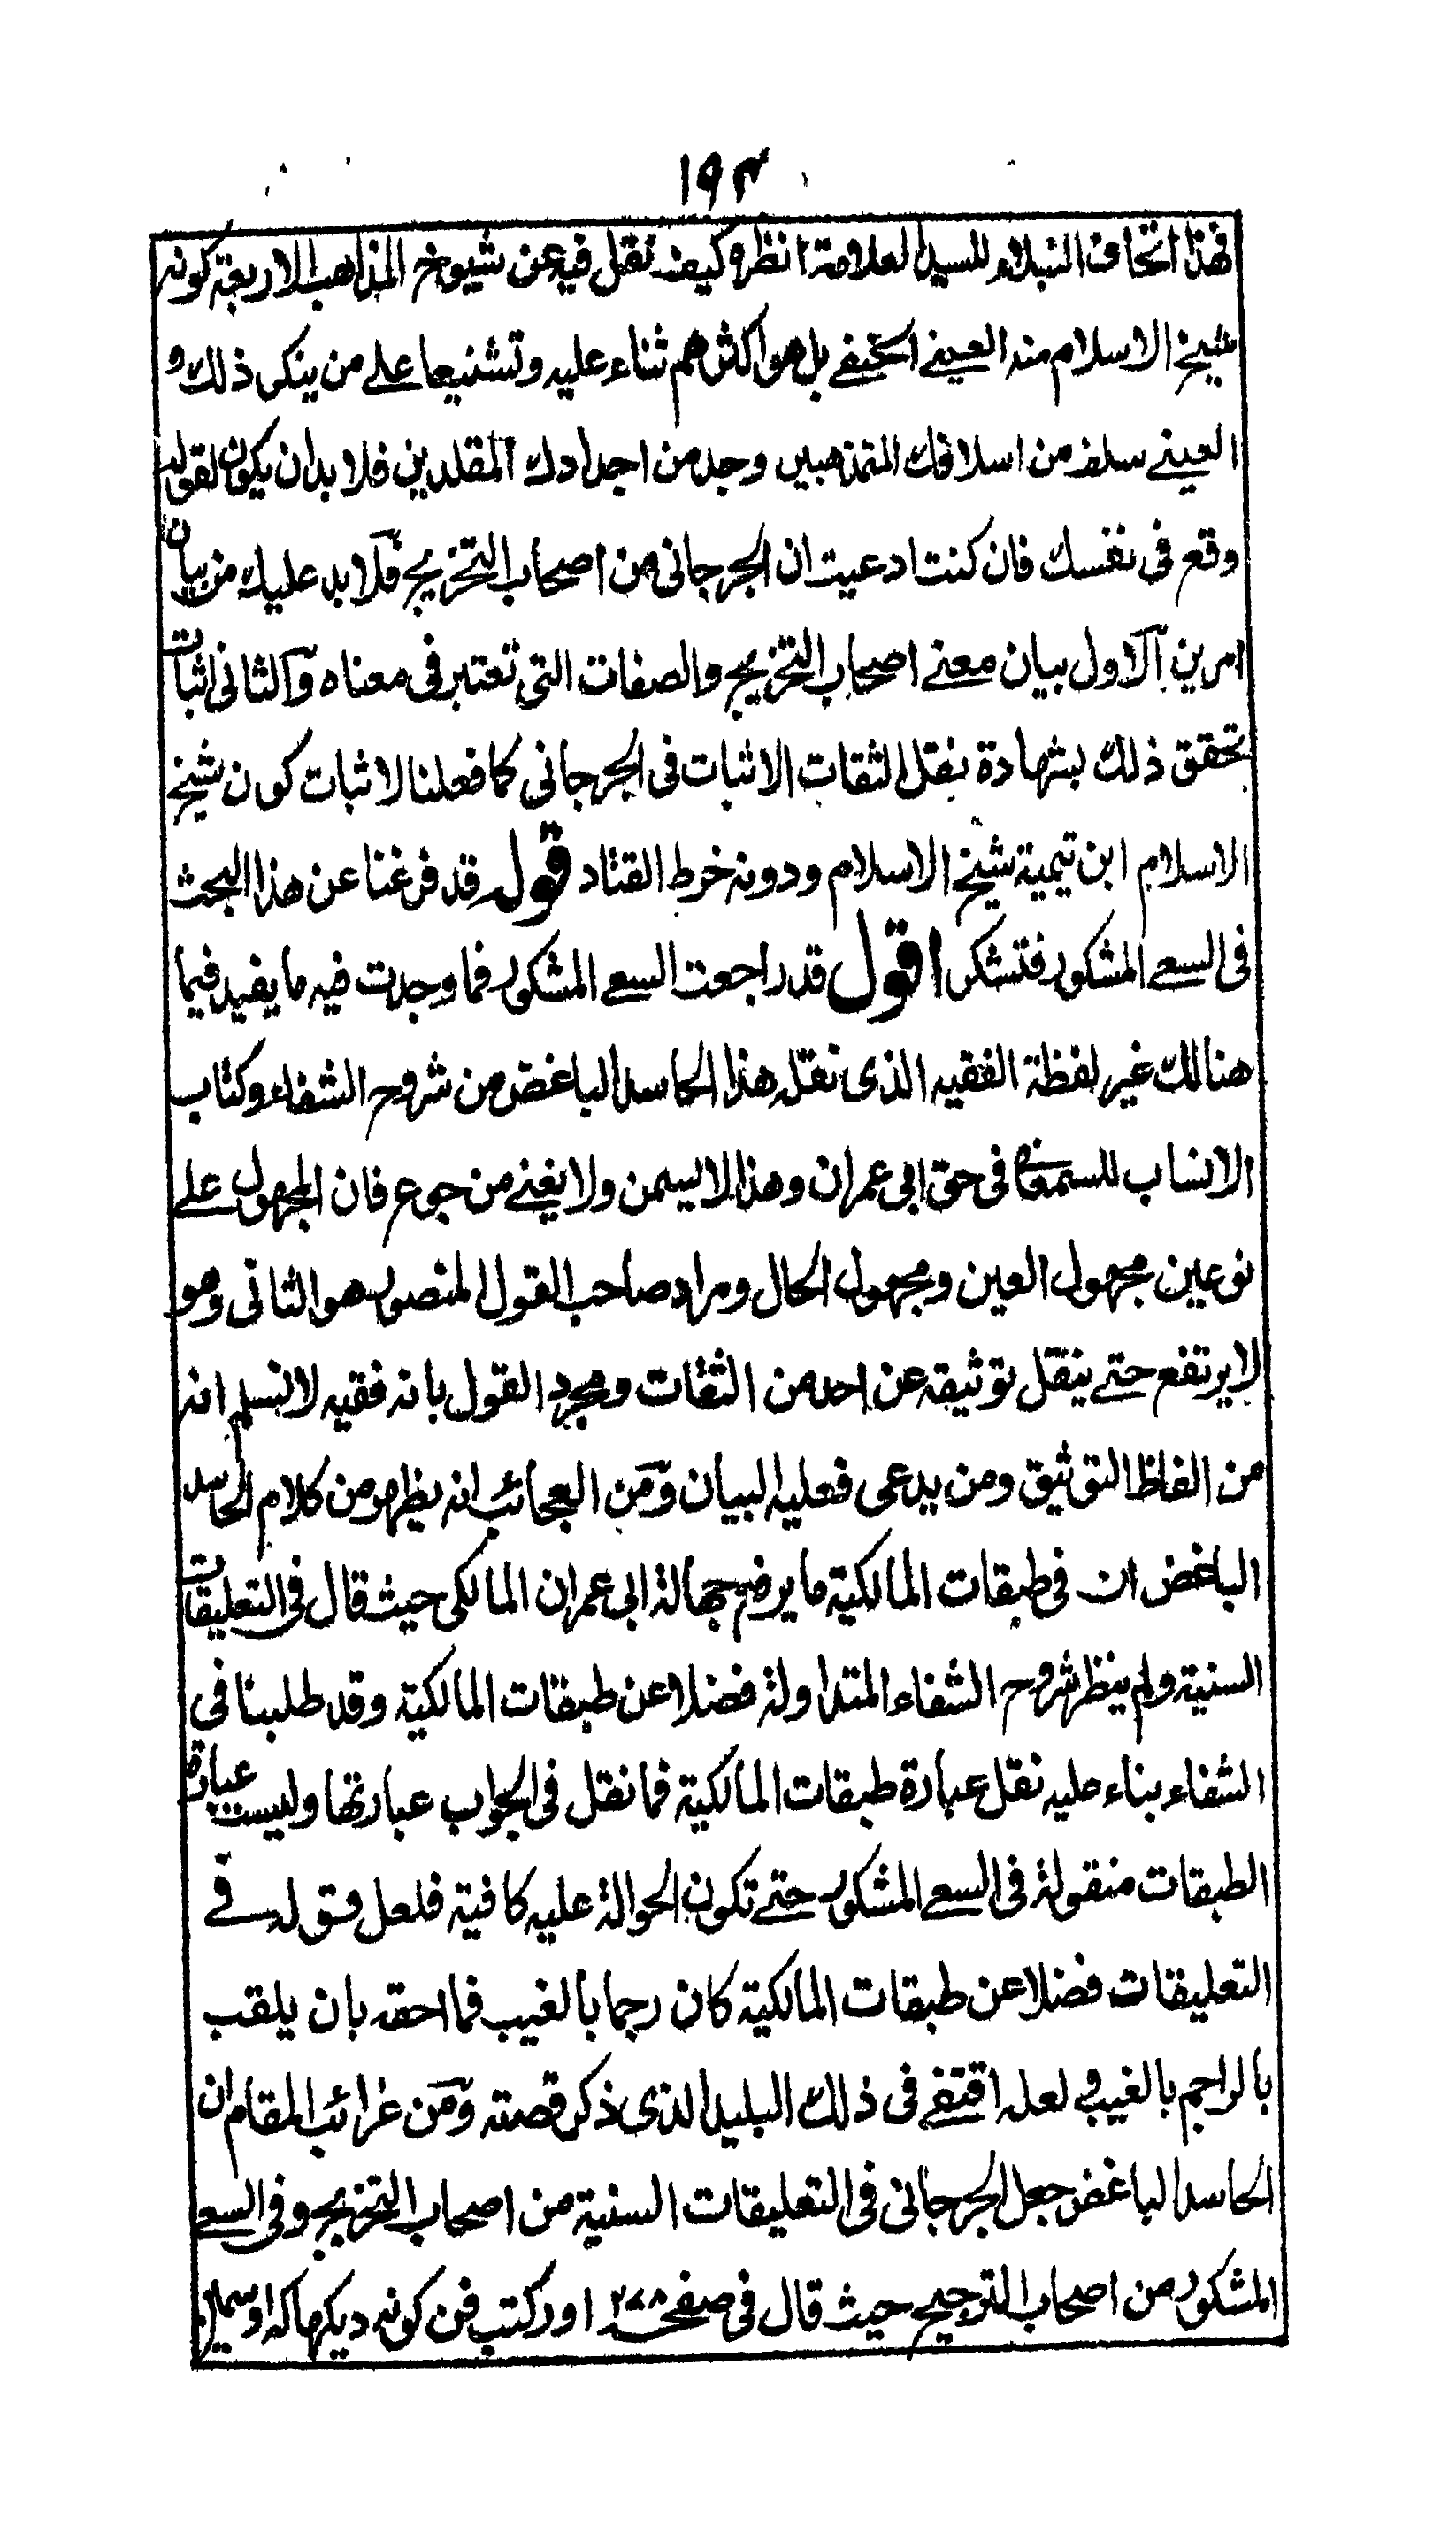 ١٩٣
فهذا اتحاف النبلاء للسيد العلامة انظر وكيف نقل فيه عن شيوخ المذاهب الاربعة كونه
شيخ الاسلام منه العينے الحنفے بل هو اكثرهم ثناء عليه وتشنيعا علے من ينكر ذلك و
العينے سلف من اسلافك المتمذهبين وجد من اجدادك المقلدين فلا بد ان يكون لقوله
وقع فى نفسك فان كنت ادعيت ان الجرجانى من اصحاب التخريج فلا بد عليك من بيان
امرين الاول بيان معنے اصحاب التخريج والصفات التى تعتبر فى معناه والثانى اثبات
تحقق ذلك بشهادة نقل الثقات الاثبات فى الجرجانى كما فعلنا لاثبات كون شيخ
الاسلام ابن تيمية شيخ الاسلام ودونه خرط القتاد قوله قد فرغنا عن هذا البحث
فى السعے المشكور فتشكر اقول قد راجعت السعے المشكور فما وجدت فيه ما يفيد فيما
هنالك غير لفظة الفقيه الذى نقله هذا الحاسد الباغض من شروح الشفاء وكتاب
الانساب للسمعانے فى حق ابى عمران وهذا لا يسمن ولا يغنے من جوع فان المجهول علے
نوعين مجهول العين ومجهول الحال ومراد صاحب القول المنصور هو الثانى وهو
لا يرتفع حتے ينقل توثيقه عن احد من الثقات ومجرد القول بانه فقيه لا نسلم انه
من الفاظ التوثيق ومن يدعى فعليه البيان ومن العجائب انه يظهر من كلام الحاسد
الباغض ان فى طبقات المالكية ما يرفع جهالة ابى عمران المالكى حيث قال فى التعليقات
السنية ولم ينظر شروح الشفاء المتداولة فضلا عن طبقات المالكية وقد طلبنا فى
الشفاء بناء عليه نقل عبارة طبقات المالكية فما نقل فى الجواب عبارتها وليست عبارة
الطبقات منقولة فى السعے المشكور حتے تكون الحوالة عليه كافية فلعل قوله فے
التعليقات فضلا عن طبقات المالكية كان رجما بالغيب فما احقه بان يلقب
بالراجم بالغيب و لعله اقتفے فى ذلك البليد الذى ذكر قصته ومن غرائب المقام ان
الحاسد الباغض جعل الجرجانى فى التعليقات السنية من اصحاب التخريج وفى السعے
المشكور من اصحاب الترجيح حيث قال فى صفحة ٢٧٨ اور كتب فن كو نه ديكها كه اوسمين